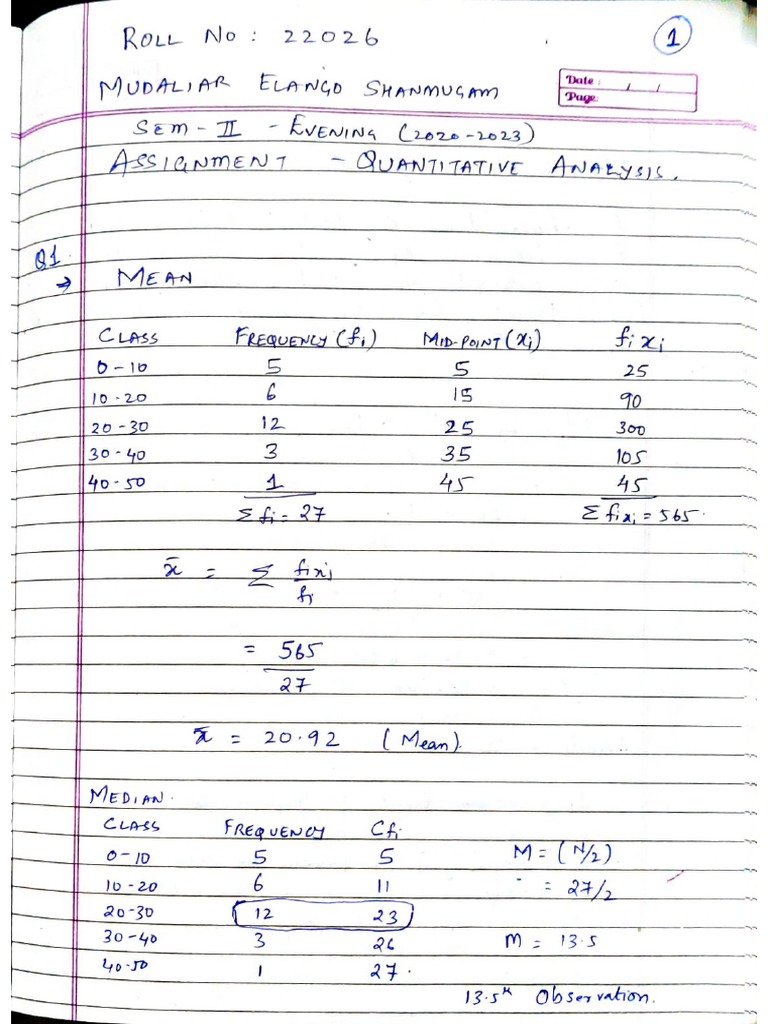 ROLL NO : 22026
1
MUDALIAR ELANGO SHANMUGAM
Date : / /
Page:
SEM - II - EVENING (2020-2023)
ASSIGNMENT - QUANTITATIVE ANALYSIS.
Q1.
→ MEAN
CLASS FREQUENCY (fi) MID-POINT (xi) fi xi
0-10 5 5 25
10-20 6 15 90
20-30 12 25 300
30-40 3 35 105
40-50 1 45 45
Σ fi = 27 Σ fixi = 565.
x̄ = Σ fixi
fi
= 565
27
x̄ = 20.92 (Mean).
MEDIAN.
CLASS FREQUENCY Cfi
0-10 5 5 M = (N/2)
10-20 6 11 = 27/2
20-30 12 23
30-40 3 26 M = 13.5
40-50 1 27.
13.5th Observation.